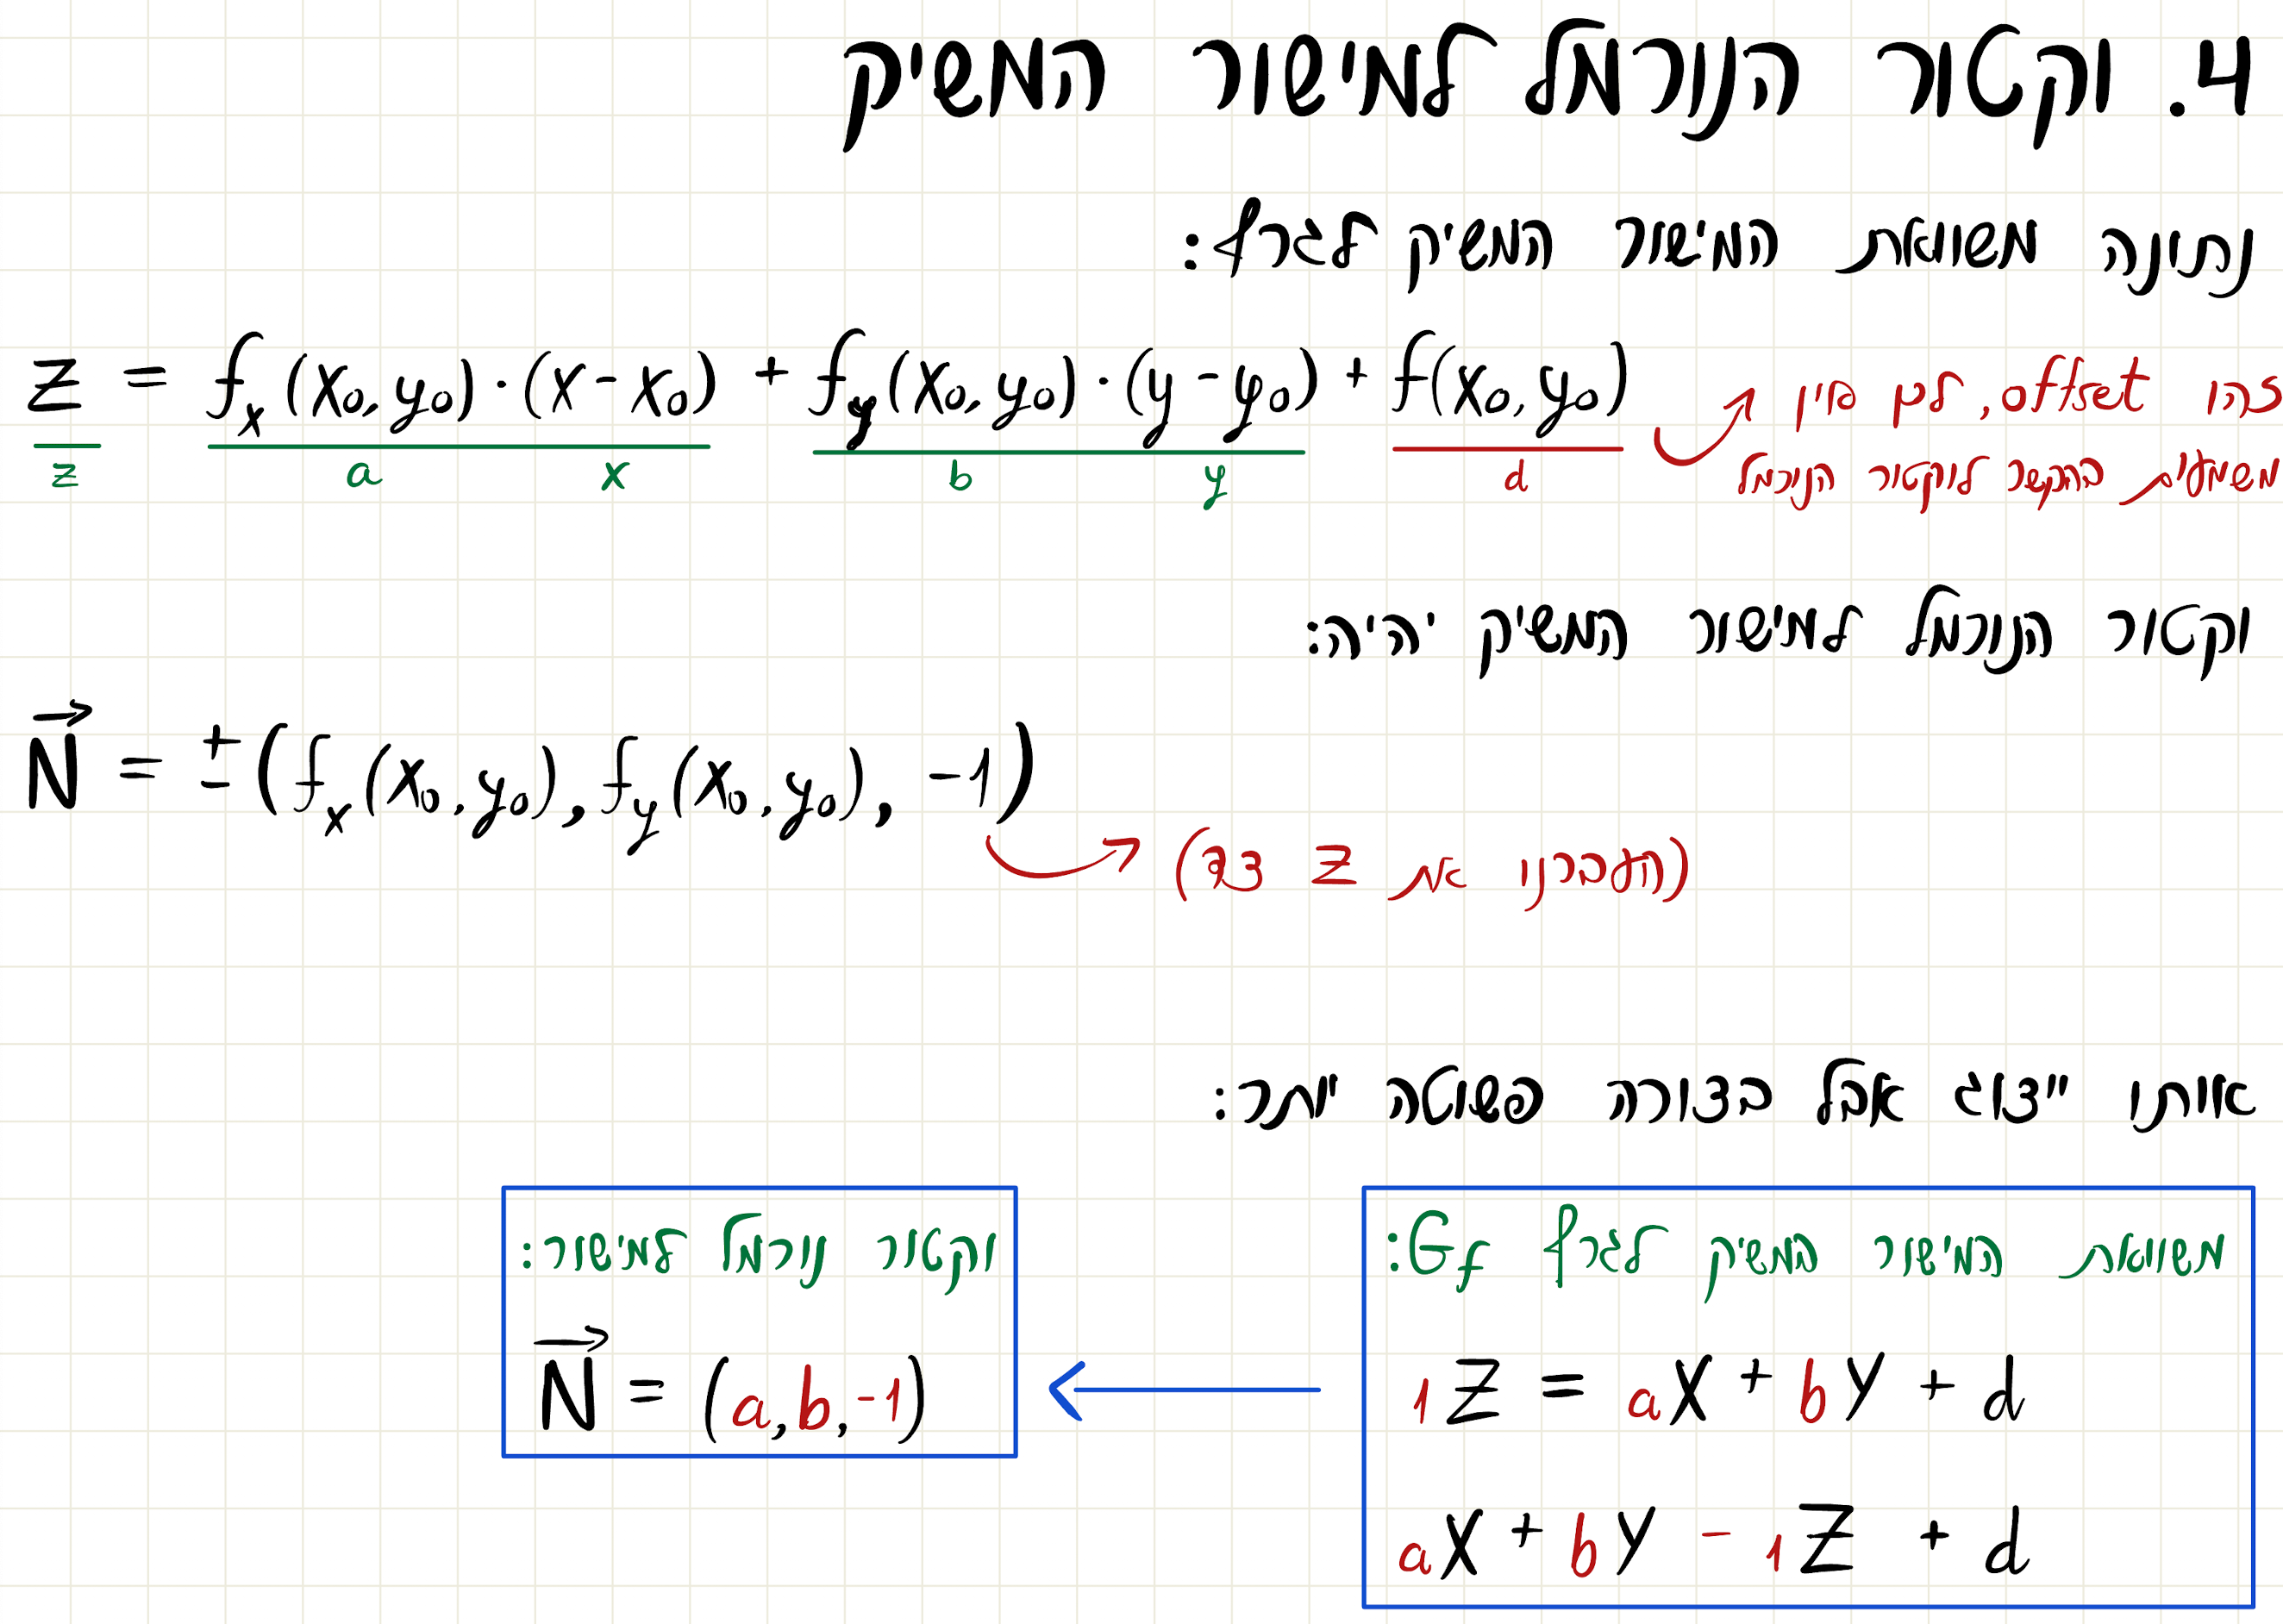 4. וקטור הנורמל למישור המשיק
נתונה משוואת המישור המשיק לגרף:
z = f_x(x₀,y₀)·(x-x₀) + f_y(x₀,y₀)·(y-y₀) + f(x₀,y₀)
z a x b y d
זהו offset, לכן אין ל
משמעות בהקשר לוקטור הנורמל
וקטור הנורמל למישור המשיק יהיה:
N⃗ = ±(f_x(x₀,y₀), f_y(x₀,y₀), -1)
(העברנו את z צד)
אותו ייצוג אבל בצורה פשוטה יותר:
משוואת המישור המשיק לגרף Gf:
1z = ax + by + d
ax + by - 1z + d
וקטור נורמל למישור:
N⃗ = (a,b,-1)